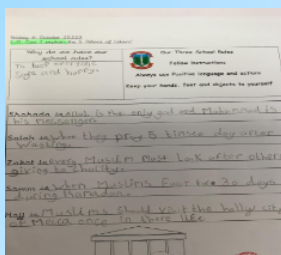 Why do we have our
school rules?
To keep everyone
safe and happy.
Our Three School Rules
Follow instructions
Always use Positive language and actions
Keep your hands, feet and objects to yourself
Shahada is Allah is the only god and Muhammad is
his messanger.
Salah is when they pray 5 times day after
washing.
Zakat is every Muslim must look after other
giving to charity.
Sawm is when Muslims fast for 30 days
during Ramadan.
Hajj is Muslims should visit the holly city
of Mecca once in there life